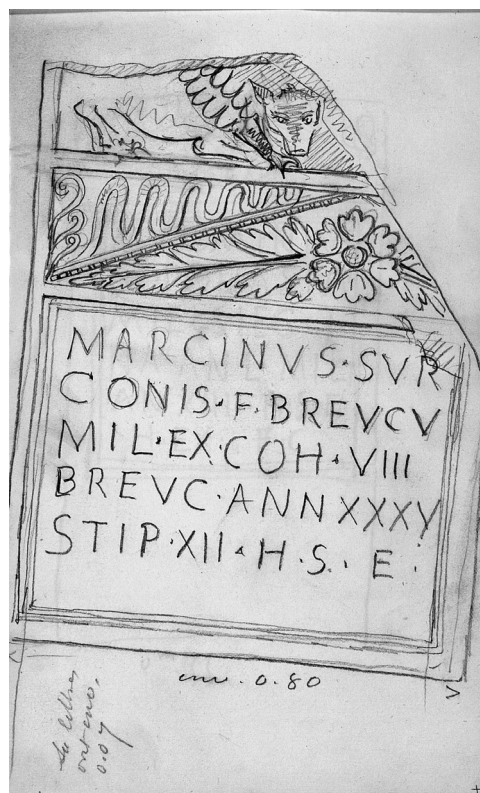 MARCINVS · SVR
CONIS · F · BREVCV
MIL · EX · COH · VIII
BREVC · ANN XXXV
STIP · XII · H · S · E ·
env. 0.80
les lettres
ont env.
0.07